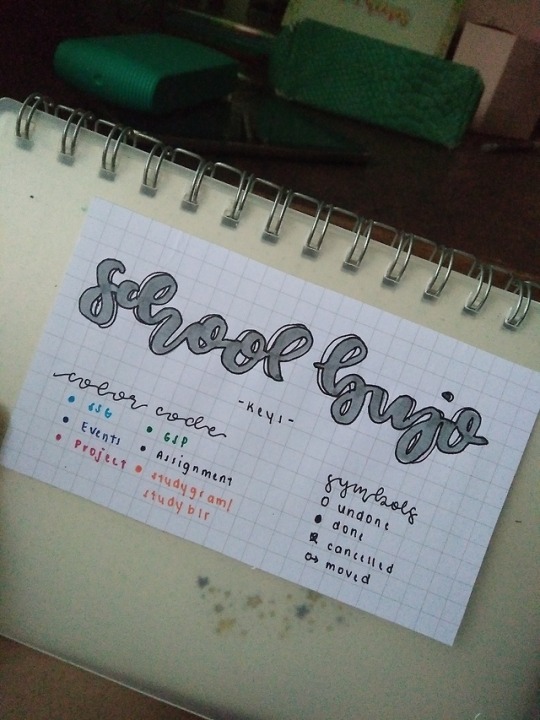 school bujo
-keys-
color code
SSG
Events
Project
GSP
Assignment
studygram/
studyblr
symbols
undone
done
cancelled
moved